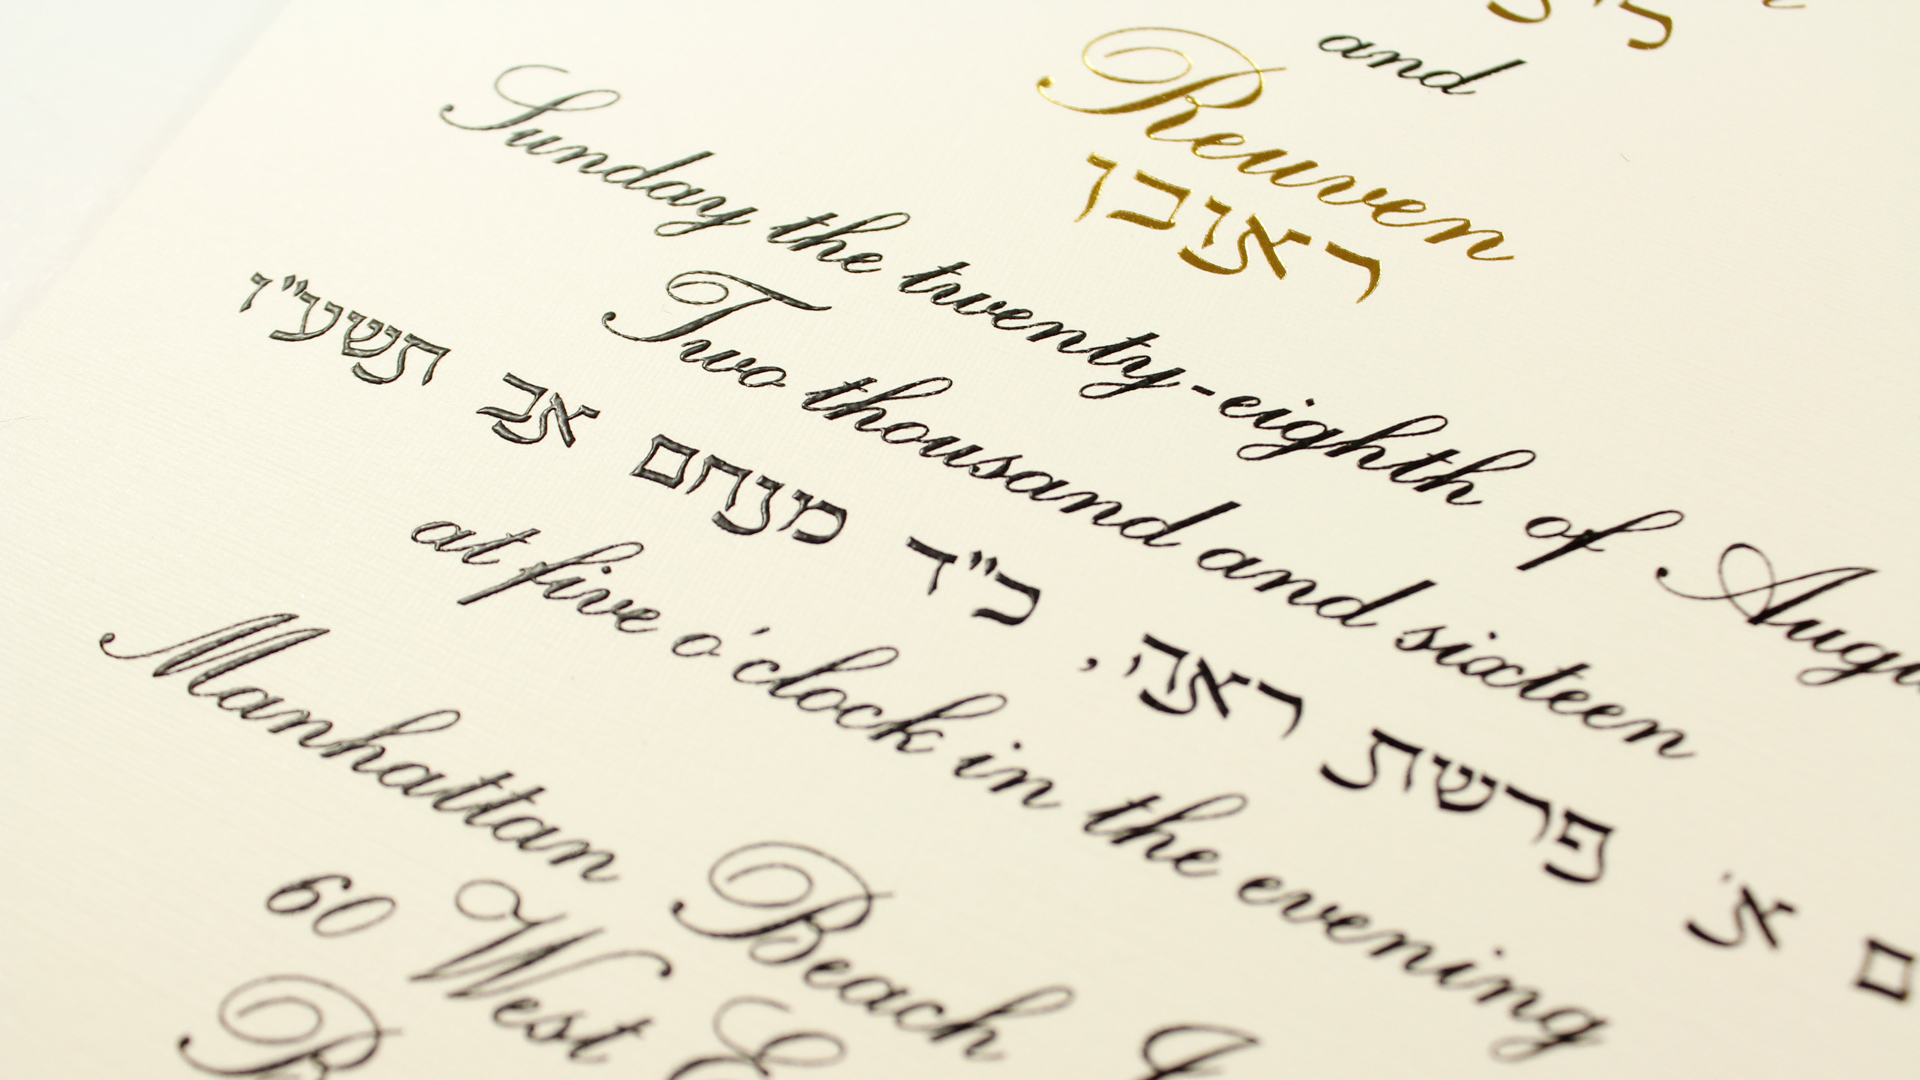 and
Reuven
ראובן
Sunday the twenty-eighth of
Two thousand and sixteen
א' פרשת ראה, כ"ד מנחם אב תשע"ו
at five o'clock in the evening
Manhattan Beach
60 West